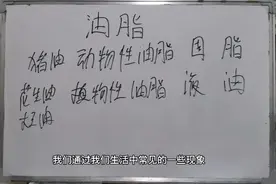 油脂
猪油 动物性油脂 固 脂
花生油 植物性油脂 液 油
豆油
我们通过我们生活中常见的一些现象